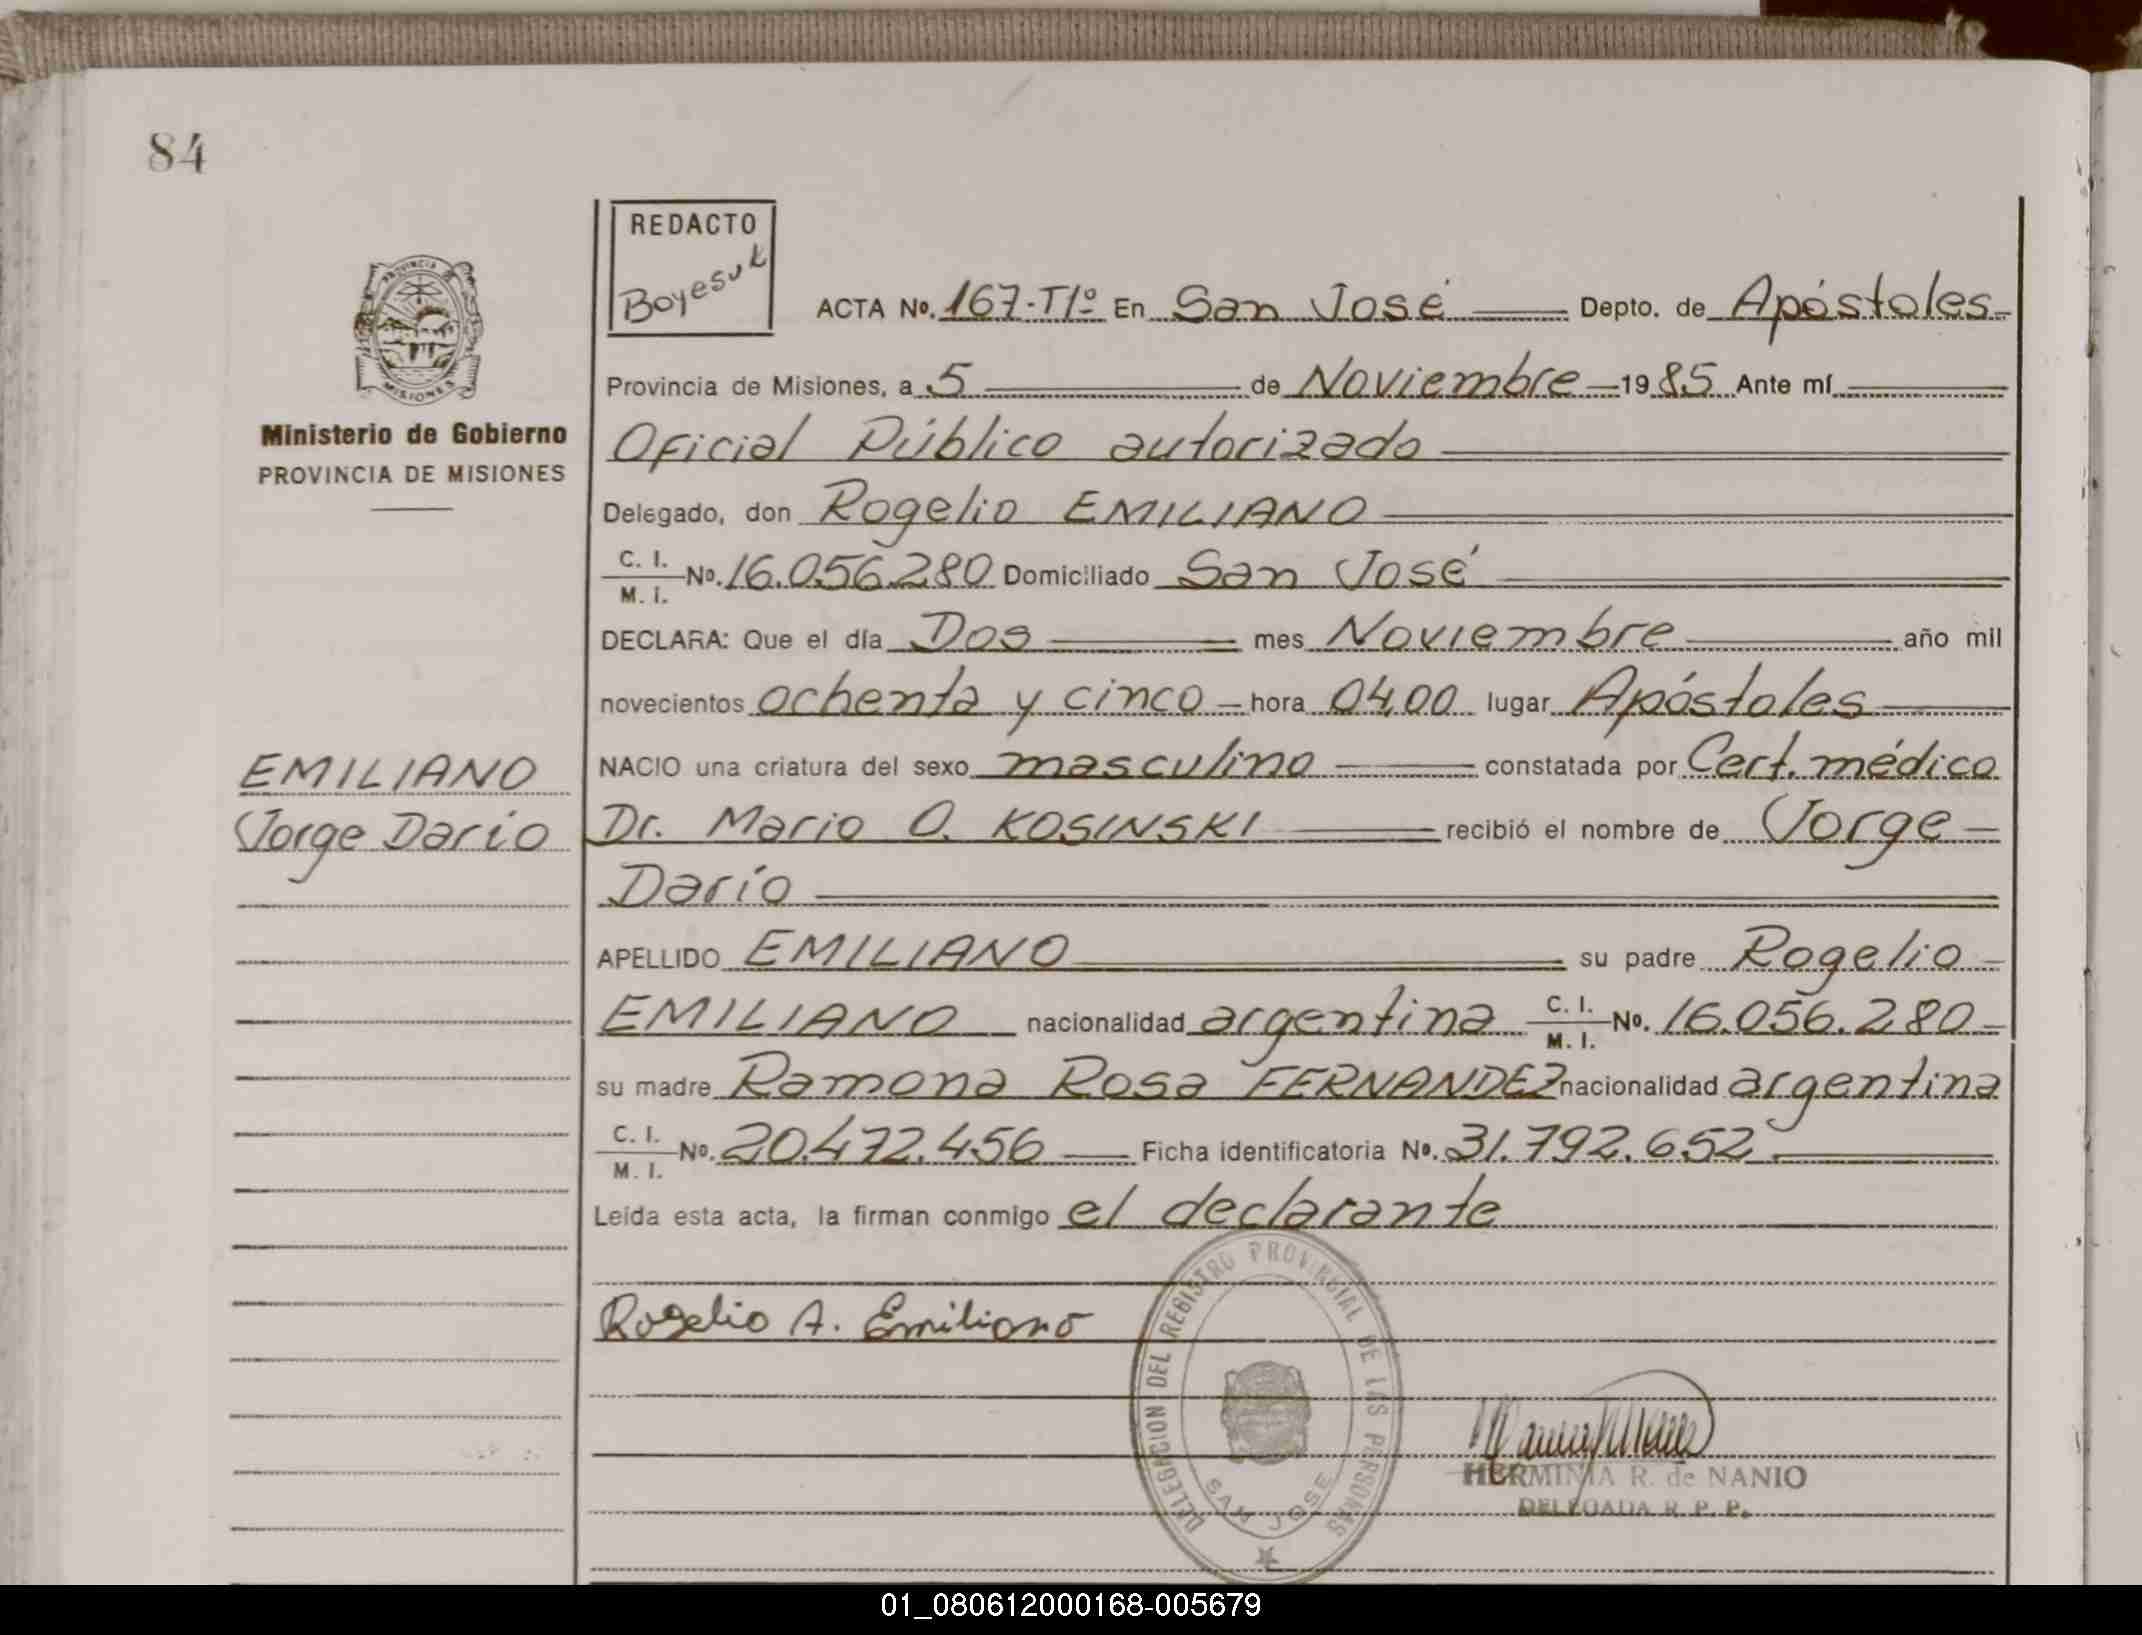 84
REDACTO
Boyesuk
PROVINCIA
MISIONES
ACTA No. 167-T1º En San José Depto. de Apóstoles
Provincia de Misiones, a 5 de Noviembre 1985 Ante mí
Ministerio de Gobierno
PROVINCIA DE MISIONES
Oficial Público autorizado
Delegado, don Rogelio EMILIANO
C. I. / M. I. No. 16.056.280 Domiciliado San José
DECLARA: Que el día Dos mes Noviembre año mil
novecientos ochenta y cinco hora 04,00 lugar Apóstoles
EMILIANO
Jorge Dario
NACIO una criatura del sexo masculino constatada por Cert. médico
Dr. Mario O. KOSINSKI recibió el nombre de Jorge
Darío
APELLIDO EMILIANO su padre Rogelio
EMILIANO nacionalidad argentina C. I. / M. I. No. 16.056.280
su madre Ramona Rosa FERNANDEZ nacionalidad argentina
C. I. / M. I. No. 20.472.456 Ficha identificatoria No. 31.792.652
Leída esta acta, la firman conmigo el declarante
Rogelio A. Emiliano
DELEGACION DEL REGISTRO PROVINCIAL DE LAS PERSONAS
SAN JOSE
HERMINIA R. de NANIO
DELEGADA R. P. P.
01_080612000168-005679